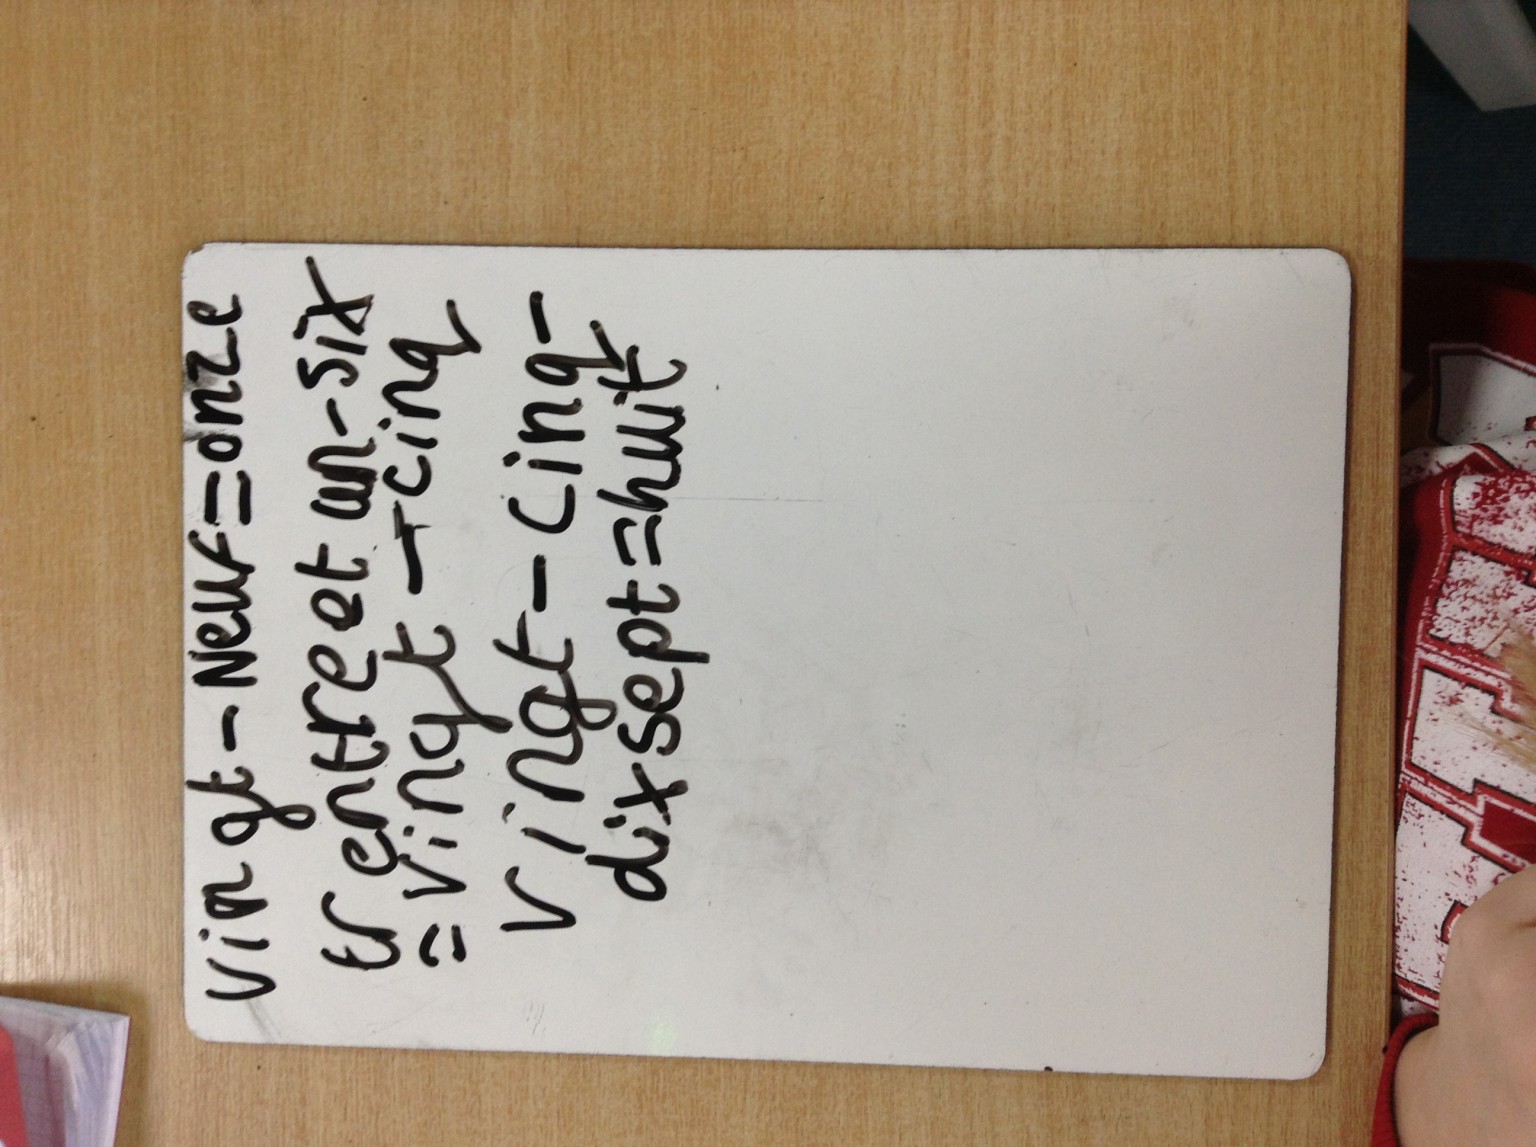 vingt - Neuf = onze
trentre et un - six
= vingt - cinq
vingt - cinq -
dix sept = huit